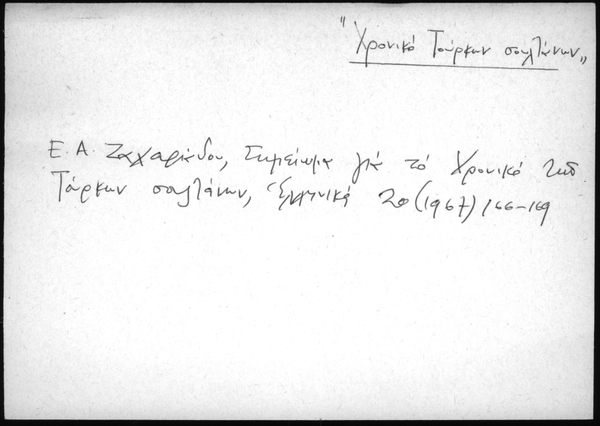 "Χρονικό Τούρκων σουλτάνων„
Ε. Α. Ζαχαριάδου, Σημείωμα γιά τό Χρονικό τῶν
Τούρκων σουλτάνων, Ἑλληνικά 20 (1967) 166-169